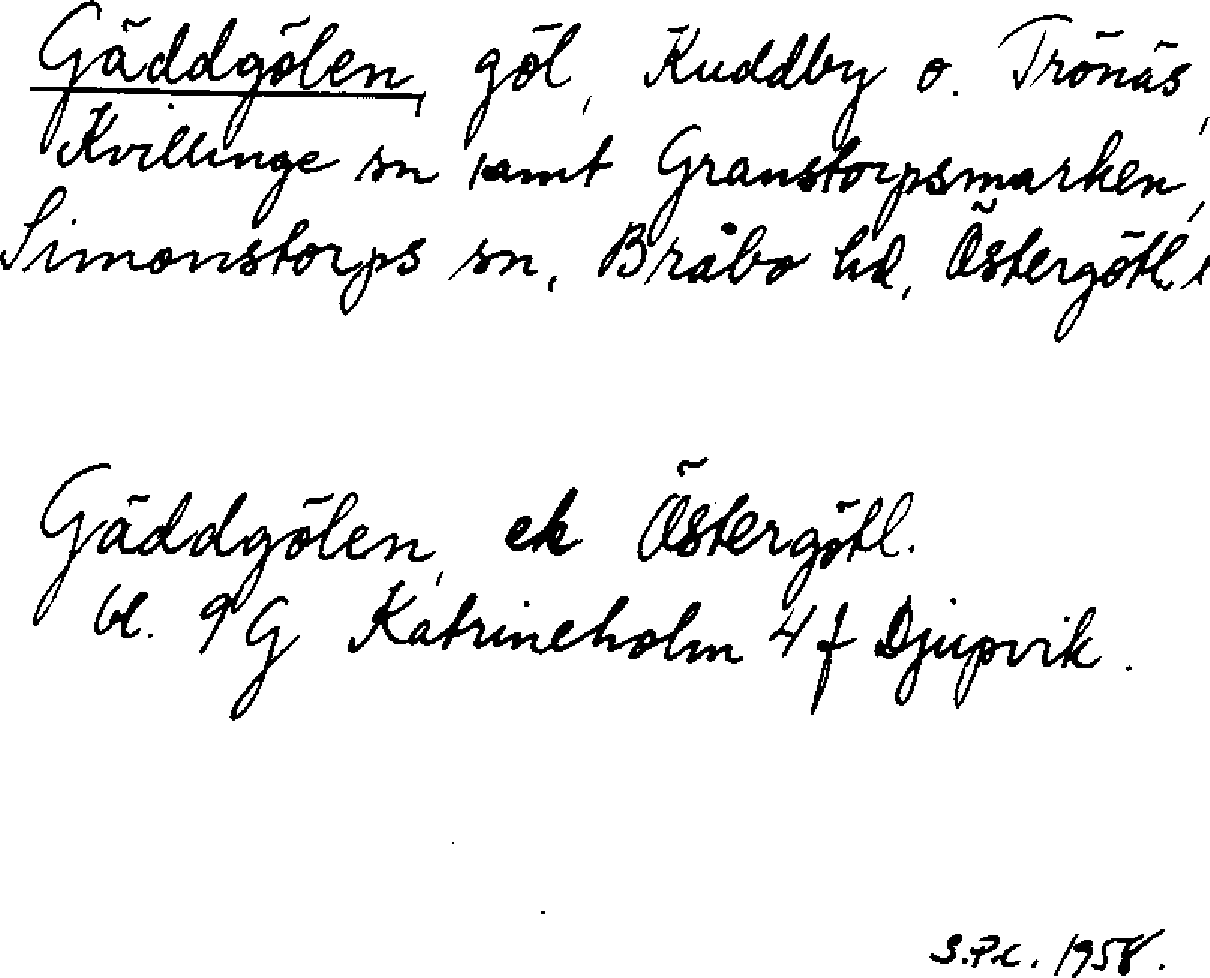 Gäddgölen, göl, Kuddby o. Trönäs,
Kvillinge sn samt Granstorpsmarken,
Simonstorps sn, Bråbo hd, Östergötl.
Gäddgölen, ek Östergötl.
bl. 9G Katrineholm 4f Djupvik.
1958.